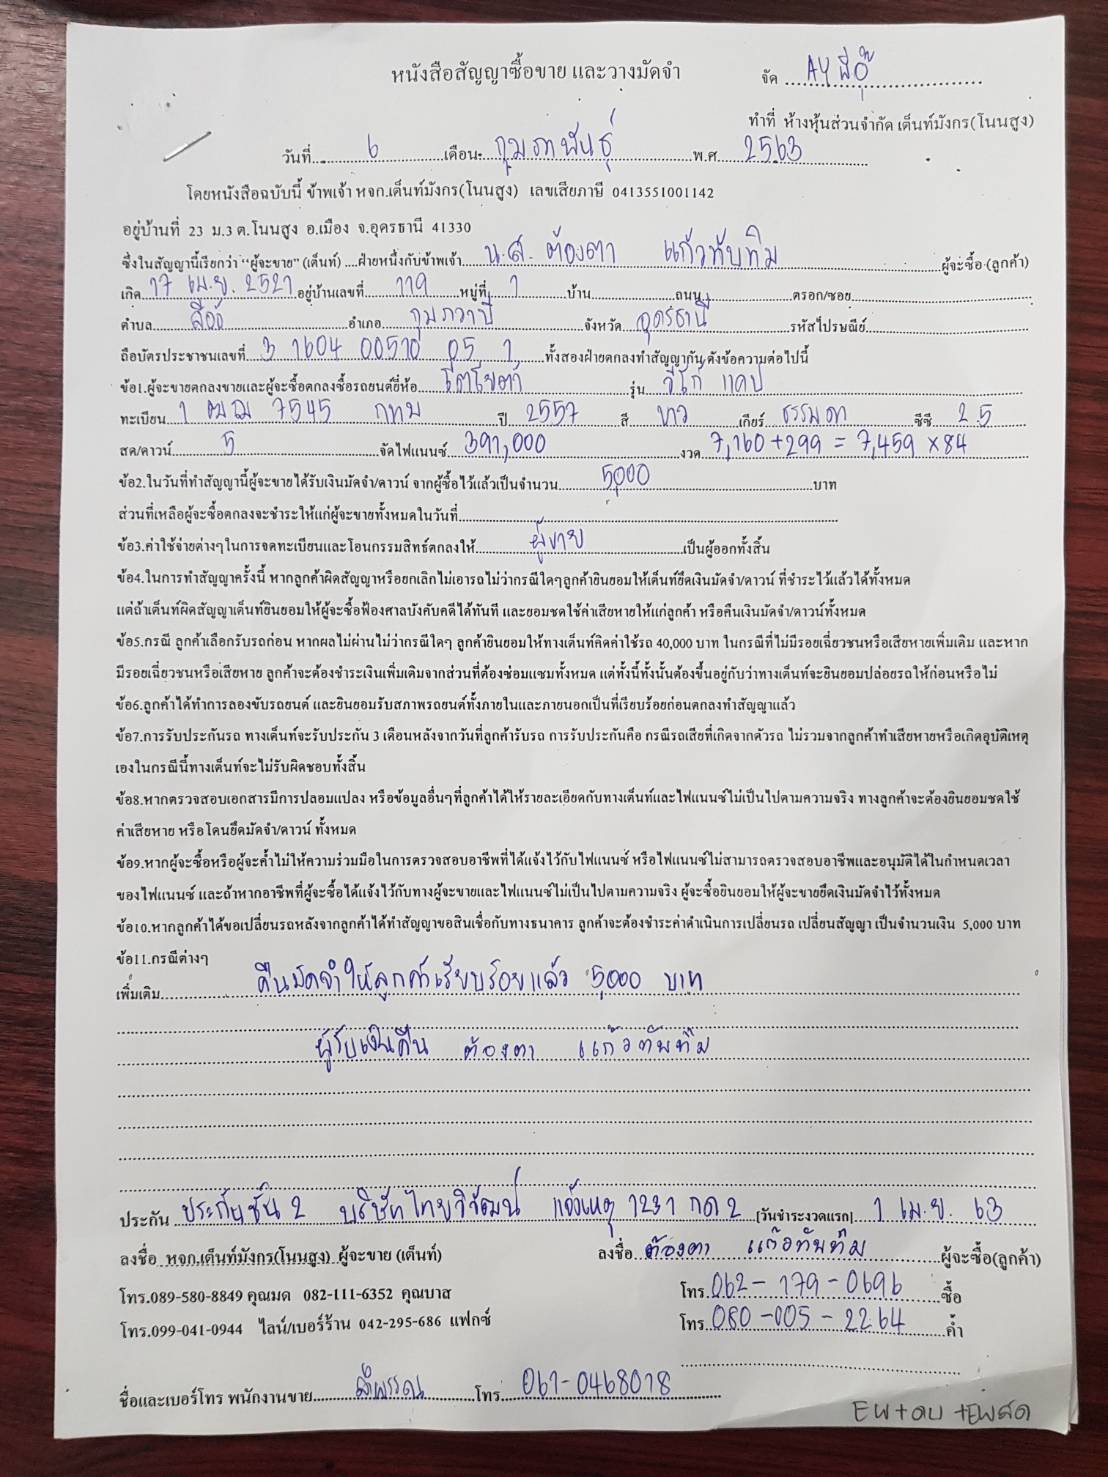 หนังสือสัญญาซื้อขาย และวางมัดจำ
จัด AY พี่อุ๊
ทำที่ ห้างหุ้นส่วนจำกัด เต็นท์มังกร(โนนสูง)
วันที่ 6 เดือน กุมภาพันธุ์ พ.ศ 2563
โดยหนังสือฉบับนี้ ข้าพเจ้า หจก.เต็นท์มังกร(โนนสูง) เลขเสียภาษี 0413551001142
อยู่บ้านที่ 23 ม.3 ต.โนนสูง อ.เมือง จ.อุดรธานี 41330
ซึ่งในสัญญานี้เรียกว่า "ผู้จะขาย" (เต็นท์) ....ฝ่ายหนึ่งกับข้าพเจ้า น.ส. ต้องตา แก้วทับทิม ผู้จะซื้อ (ลูกค้า)
เกิด 17 เม.ย. 2521 อยู่บ้านเลขที่ 119 หมู่ที่ 1 บ้าน ถนน ตรอก/ซอย
ตำบล สีออ อำเภอ กุมภวาปี จังหวัด อุดรธานี รหัสไปรษณีย์
ถือบัตรประชาชนเลขที่ 3 1604 00510 05 1 ทั้งสองฝ่ายตกลงทำสัญญากัน ดังข้อความต่อไปนี้
ข้อ1.ผู้จะขายตกลงขายและผู้จะซื้อตกลงซื้อรถยนต์ยี่ห้อ โตโยต้า รุ่น วีโก้ แคป
ทะเบียน 1 ฒฌ 7545 กทม ปี 2557 สี ขาว เกียร์ ธรรมดา ซีซี 2.5
สด/ดาวน์ 5 จัดไฟแนนซ์ 391,000 งวด 7,160+299 = 7,459 x84
ข้อ2.ในวันที่ทำสัญญานี้ผู้จะขายได้รับเงินมัดจำ/ดาวน์ จากผู้ซื้อไว้แล้วเป็นจำนวน 5,000 บาท
ส่วนที่เหลือผู้จะซื้อตกลงจะชำระให้แก่ผู้จะขายทั้งหมดในวันที่
ข้อ3.ค่าใช้จ่ายต่างๆในการจดทะเบียนและโอนกรรมสิทธ์ตกลงให้ ผู้ขาย เป็นผู้ออกทั้งสิ้น
ข้อ4.ในการทำสัญญาครั้งนี้ หากลูกค้าผิดสัญญาหรือยกเลิกไม่เอารถไม่ว่ากรณีใดๆลูกค้ายินยอมให้เต็นท์ยึดเงินมัดจำ/ดาวน์ ที่ชำระไว้แล้วได้ทั้งหมด
แต่ถ้าเต็นท์ผิดสัญญาเต็นท์ยินยอมให้ผู้จะซื้อฟ้องศาลบังคับคดีได้ทันที และยอมชดใช้ค่าเสียหายให้แก่ลูกค้า หรือคืนเงินมัดจำ/ดาวน์ทั้งหมด
ข้อ5.กรณี ลูกค้าเลือกรับรถก่อน หากผลไม่ผ่านไม่ว่ากรณีใดๆ ลูกค้ายินยอมให้ทางเต็นท์คิดค่าใช้รถ 40,000 บาท ในกรณีที่ไม่มีรอยเฉี่ยวชนหรือเสียหายเพิ่มเติม และหาก
มีรอยเฉี่ยวชนหรือเสียหาย ลูกค้าจะต้องชำระเงินเพิ่มเติมจากส่วนที่ต้องซ่อมแซมทั้งหมด แต่ทั้งนี้ทั้งนั้นต้องขึ้นอยู่กับว่าทางเต็นท์จะยินยอมปล่อยรถให้ก่อนหรือไม่
ข้อ6.ลูกค้าได้ทำการลองขับรถยนต์ และยินยอมรับสภาพรถยนต์ทั้งภายในและภายนอกเป็นที่เรียบร้อยก่อนตกลงทำสัญญาแล้ว
ข้อ7.การรับประกันรถ ทางเต็นท์จะรับประกัน 3 เดือนหลังจากวันที่ลูกค้ารับรถ การรับประกันคือ กรณีรถเสียที่เกิดจากตัวรถ ไม่รวมจากลูกค้าทำเสียหายหรือเกิดอุบัติเหตุ
เองในกรณีนี้ทางเต็นท์จะไม่รับผิดชอบทั้งสิ้น
ข้อ8.หากตรวจสอบเอกสารมีการปลอมแปลง หรือข้อมูลอื่นๆที่ลูกค้าได้ให้รายละเอียดกับทางเต็นท์และไฟแนนซ์ไม่เป็นไปตามความจริง ทางลูกค้าจะต้องยินยอมชดใช้
ค่าเสียหาย หรือโดนยึดมัดจำ/ดาวน์ ทั้งหมด
ข้อ9.หากผู้จะซื้อหรือผู้จะค้ำไม่ให้ความร่วมมือในการตรวจสอบอาชีพที่ได้แจ้งไว้กับไฟแนนซ์ หรือไฟแนนซ์ไม่สามารถตรวจสอบอาชีพและอนุมัติได้ในกำหนดเวลา
ของไฟแนนซ์ และถ้าหากอาชีพที่ผู้จะซื้อได้แจ้งไว้กับทางผู้จะขายและไฟแนนซ์ไม่เป็นไปตามความจริง ผู้จะซื้อยินยอมให้ผู้จะขายยึดเงินมัดจำไว้ทั้งหมด
ข้อ10.หากลูกค้าได้ขอเปลี่ยนรถหลังจากลูกค้าได้ทำสัญญาขอสินเชื่อกับทางธนาคาร ลูกค้าจะต้องชำระค่าดำเนินการเปลี่ยนรถ เปลี่ยนสัญญา เป็นจำนวนเงิน 5,000 บาท
ข้อ11.กรณีต่างๆ
เพิ่มเติม คืนมัดจำให้ลูกค้าเรียบร้อยแล้ว 5,000 บาท
ผู้รับเงินคืน ต้องตา แก้วทับทิม
ประกัน ประกันชั้น 2 บริษัทไทยวิวัฒน์ แจ้งเหตุ 1231 กด 2 [วันชำระงวดแรก] 1 เม.ย. 63
ลงชื่อ หจก.เต็นท์มังกร(โนนสูง) ผู้จะขาย (เต็นท์) ลงชื่อ ต้องตา แก้วทับทิม ผู้จะซื้อ(ลูกค้า)
โทร.089-580-8849 คุณมด 082-111-6352 คุณบาส โทร. 062-179-0696 ซื้อ
โทร.099-041-0944 ไลน์/เบอร์ร้าน 042-295-686 แฟกซ์ โทร. 080-005-2264 ค้ำ
ชื่อและเบอร์โทร พนักงานขาย โทร 061-0468018
EW+ดบ +EWสด